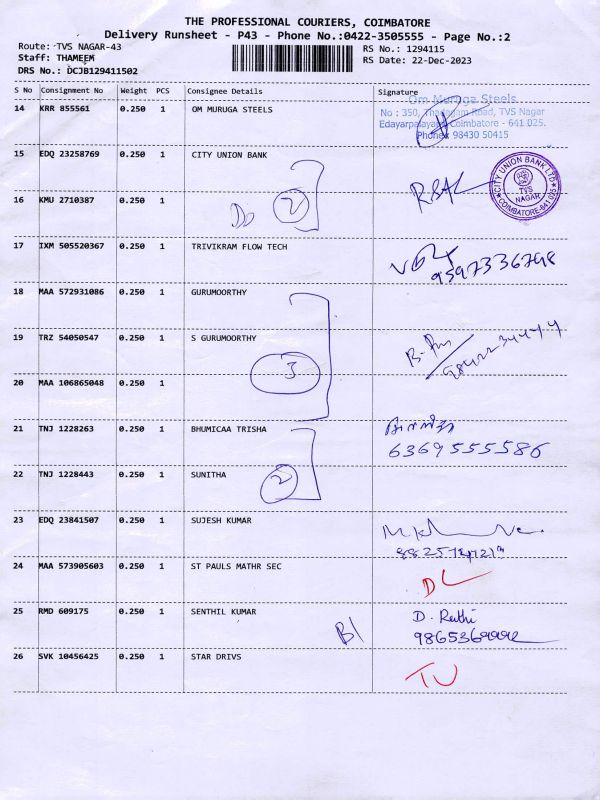 THE PROFESSIONAL COURIERS, COIMBATORE
Delivery Runsheet - P43 - Phone No.:0422-3505555 - Page No.:2
Route: TVS NAGAR-43
RS No.: 1294115
Staff: THAMEEM
RS Date: 22-Dec-2023
DRS No.: DCJB129411502
S No Consignment No Weight PCS Consignee Details Signature
14 KRR 855561 0.250 1 OM MURUGA STEELS
Om Muruga Steels
No : 350, Thadagam Road, TVS Nagar
Edayarpalayam, Coimbatore - 641 025.
Phone: 98430 50415
15 EDQ 23258769 0.250 1 CITY UNION BANK
CITY UNION BANK LTD
TVS NAGAR
COIMBATORE-641025
2
16 KMU 2710387 0.250 1
17 IXM 505520367 0.250 1 TRIVIKRAM FLOW TECH
9597336798
18 MAA 572931086 0.250 1 GURUMOORTHY
19 TRZ 54050547 0.250 1 S GURUMOORTHY
3
20 MAA 106865048 0.250 1
21 TNJ 1228263 0.250 1 BHUMICAA TRISHA
6369555586
22 TNJ 1228443 0.250 1 SUNITHA
2
23 EDQ 23841507 0.250 1 SUJESH KUMAR
24 MAA 573905603 0.250 1 ST PAULS MATHR SEC
DL
25 RMD 609175 0.250 1 SENTHIL KUMAR
D. Rathi
26 SVK 10456425 0.250 1 STAR DRIVS